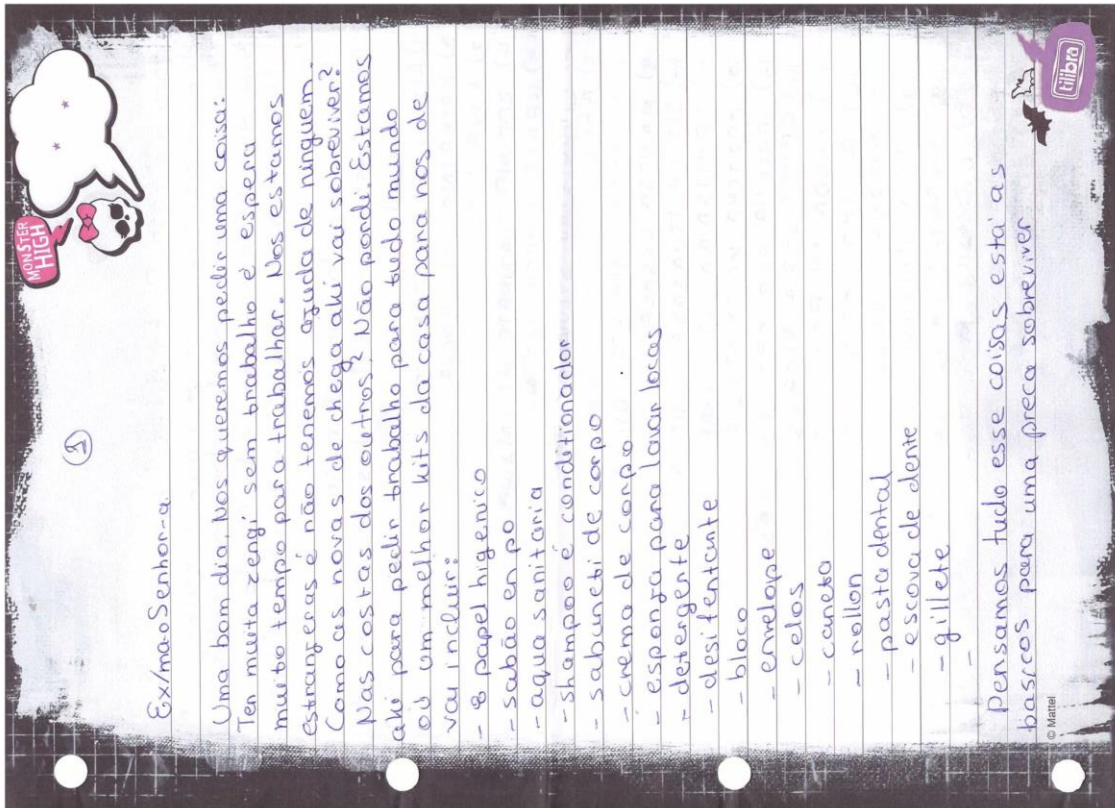 MONSTER HIGH
1
Ex/mao Senhor-a
Uma bom dia, Nos queremos pedir uma coisa:
Ten muita zengi sem trabalho é espera
muito tempo para trabalhar. Nos estamos
estranգeras é não tenemos aguda de ninguem.
Como as novas de chega aki vai sobreviver?
Nas costas dos outros? Não pordi. Estamos
aki para pedir trabalho para tudo mundo
où um melhor kits da casa para nos de
vai incluir:
- 8 papel higenico
- sabão en po
- aqua sanitaria
- shampoo é conditionador
- sabuneti de corpo
- crema de corpo
- esponja para lavar locas
- detergente
- desifentante
- bloco
- envelope
- celos
- caneta
- rollon
- pasta dental
- escova de dente
- gillete
-
Pensamos tudo esse coisas esta as
bascos para uma preca sobreviver
© Mattel
tilibra